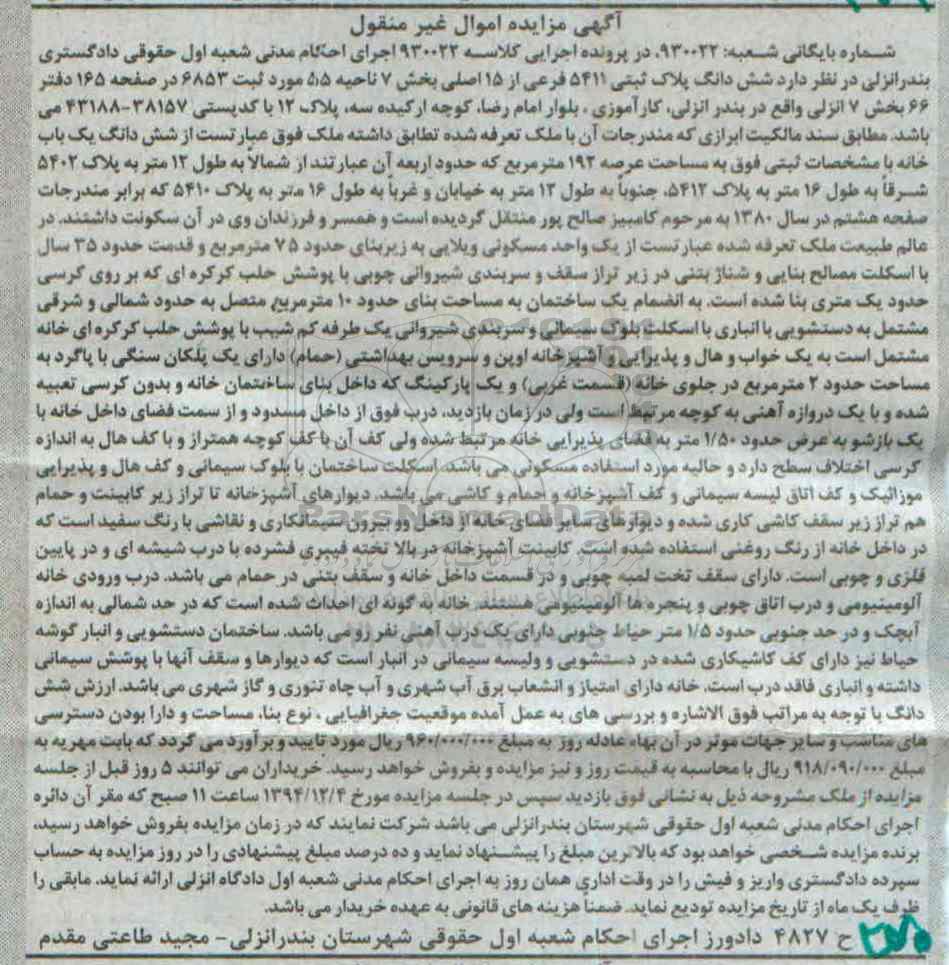 آگهی مزایده اموال غیر منقول
شماره بایگانی شعبه: ۹۳۰۰۲۲، در پرونده اجرایی کلاسه ۹۳۰۰۲۲ اجرای احکام مدنی شعبه اول حقوقی دادگستری
بندرانزلی در نظر دارد شش دانگ پلاک ثبتی ۵۴۱۱ فرعی از ۱۵ اصلی بخش ۷ ناحیه ۵،۵ مورد ثبت ۶۸۵۳ در صفحه ۱۶۵ دفتر
۶۶ بخش ۷ انزلی واقع در بندر انزلی، کارآموزی ، بلوار امام رضا، کوچه ارکیده سه، پلاک ۱۲ با کدپستی ۳۸۱۵۷-۴۳۱۸۸ می
باشد. مطابق سند مالکیت ابرازی که مندرجات آن با ملک تعرفه شده تطابق داشته ملک فوق عبارتست از شش دانگ یک باب
خانه با مشخصات ثبتی فوق به مساحت عرصه ۱۹۲ مترمربع که حدود اربعه آن عبارتند از شمالاً به طول ۱۲ متر به پلاک ۵۴۰۲
شرقاً به طول ۱۶ متر به پلاک ۵۴۱۲، جنوباً به طول ۱۲ متر به خیابان و غرباً به طول ۱۶ متر به پلاک ۵۴۱۰ که برابر مندرجات
صفحه هشتم در سال ۱۳۸۰ به مرحوم کامبیز صالح پور منتقل گردیده است و همسر و فرزندان وی در آن سکونت داشتند. در
عالم طبیعت ملک تعرفه شده عبارتست از یک واحد مسکونی ویلایی به زیربنای حدود ۷۵ مترمربع و قدمت حدود ۳۵ سال
با اسکلت مصالح بنایی و شناژ بتنی در زیر تراز سقف و سربندی شیروانی چوبی با پوشش حلب کرکره ای که بر روی کرسی
حدود یک متری بنا شده است. به انضمام یک ساختمان به مساحت بنای حدود ۱۰ مترمربع متصل به حدود شمالی و شرقی
مشتمل به دستشویی با انباری با اسکلت بلوک سیمانی و سربندی شیروانی یک طرفه کم شیب با پوشش حلب کرکره ای خانه
مشتمل است به یک خواب و هال و پذیرایی و آشپزخانه اوپن و سرویس بهداشتی (حمام) دارای یک پلکان سنگی با پاگرد به
مساحت حدود ۲ مترمربع در جلوی خانه (قسمت غربی) و یک پارکینگ که داخل بنای ساختمان خانه و بدون کرسی تعبیه
شده و با یک دروازه آهنی به کوچه مرتبط است ولی در زمان بازدید، درب فوق از داخل مسدود و از سمت فضای داخل خانه با
یک بازشو به عرض حدود ۱/۵۰ متر به فضای پذیرایی خانه مرتبط شده ولی کف آن با کف کوچه همتراز و با کف هال به اندازه
کرسی اختلاف سطح دارد و حالیه مورد استفاده مسکونی می باشد. اسکلت ساختمان با بلوک سیمانی و کف هال و پذیرایی
موزائیک و کف اتاق لیسه سیمانی و کف آشپزخانه و حمام و کاشی می باشد. دیوارهای آشپزخانه تا تراز زیر کابینت و حمام
هم تراز زیر سقف کاشی کاری شده و دیوارهای سایر فضای خانه از داخل وو بیرون سیمانکاری و نقاشی با رنگ سفید است که
در داخل خانه از رنگ روغنی استفاده شده است. کابینت آشپزخانه در بالا تخته فیبری فشرده با درب شیشه ای و در پایین
فلزی و چوبی است. دارای سقف تخت لمبه چوبی و در قسمت داخل خانه و سقف بتنی در حمام می باشد. درب ورودی خانه
آلومینیومی و درب اتاق چوبی و پنجره ها آلومینیومی هستند. خانه به گونه ای احداث شده است که در حد شمالی به اندازه
آبچک و در حد جنوبی حدود ۱/۵ متر حیاط جنوبی دارای یک درب آهنی نفر رو می باشد. ساختمان دستشویی و انبار گوشه
حیاط نیز دارای کف کاشیکاری شده در دستشویی و ولیسه سیمانی در انبار است که دیوارها و سقف آنها با پوشش سیمانی
داشته و انباری فاقد درب است. خانه دارای امتیاز و انشعاب برق آب شهری و آب چاه تنوری و گاز شهری می باشد. ارزش شش
دانگ با توجه به مراتب فوق الاشاره و بررسی های به عمل آمده موقعیت جغرافیایی ، نوع بنا، مساحت و دارا بودن دسترسی
های مناسب و سایر جهات موثر در آن بهاء عادله روز به مبلغ ۹۶۰/۰۰۰/۰۰۰ ریال مورد تایید و برآورد می گردد که بابت مهریه به
مبلغ ۹۱۸/۰۹۰/۰۰۰ ریال با محاسبه به قیمت روز و نیز مزایده و بفروش خواهد رسید. خریداران می توانند ۵ روز قبل از جلسه
مزایده از ملک مشروحه ذیل به نشانی فوق بازدید سپس در جلسه مزایده مورخ ۱۳۹۴/۱۲/۴ ساعت ۱۱ صبح که مقر آن دائره
اجرای احکام مدنی شعبه اول حقوقی شهرستان بندرانزلی می باشد شرکت نمایند که در زمان مزایده بفروش خواهد رسید،
برنده مزایده شخصی خواهد بود که بالاترین مبلغ را پیشنهاد نماید و ده درصد مبلغ پیشنهادی را در روز مزایده به حساب
سپرده دادگستری واریز و فیش را در وقت اداری همان روز به اجرای احکام مدنی شعبه اول دادگاه انزلی ارائه نماید. مابقی را
ظرف یک ماه از تاریخ مزایده تودیع نماید. ضمناً هزینه های قانونی به عهده خریدار می باشد.
ح ۴۸۲۷ دادورز اجرای احکام شعبه اول حقوقی شهرستان بندرانزلی- مجید طاعتی مقدم
ParsNamadData